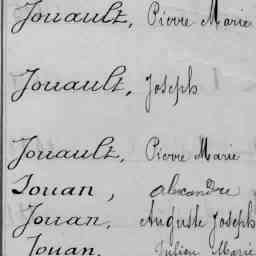 Jouault, Pierre Marie
Jouault, Joseph
Jouault, Pierre Marie
Jouan, Alexandre
Jouan, Auguste Joseph
Jouan, Julien Marie